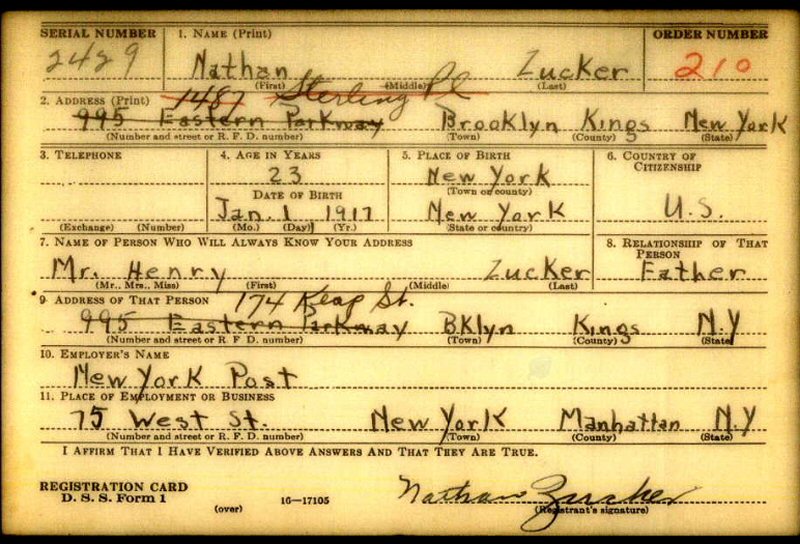 SERIAL NUMBER 1. NAME (Print) ORDER NUMBER
2429 Nathan Zucker 210
(First) (Middle) (Last)
1487 Sterling Pl
2. ADDRESS (Print)
995 Eastern Parkway Brooklyn Kings New York
(Number and street or R. F. D. number) (Town) (County) (State)
3. TELEPHONE 4. AGE IN YEARS 5. PLACE OF BIRTH 6. COUNTRY OF CITIZENSHIP
23 New York
(Town or county)
DATE OF BIRTH
Jan. 1 1917 New York U.S.
(Exchange) (Number) (Mo.) (Day) (Yr.) (State or country)
7. NAME OF PERSON WHO WILL ALWAYS KNOW YOUR ADDRESS 8. RELATIONSHIP OF THAT PERSON
Mr. Henry Zucker Father
(Mr., Mrs., Miss) (First) (Middle) (Last)
9. ADDRESS OF THAT PERSON 174 Keap St.
995 Eastern Parkway BKlyn Kings N.Y
(Number and street or R. F. D. number) (Town) (County) (State)
10. EMPLOYER'S NAME
New York Post
11. PLACE OF EMPLOYMENT OR BUSINESS
75 West St. New York Manhattan N.Y
(Number and street or R. F. D. number) (Town) (County) (State)
I AFFIRM THAT I HAVE VERIFIED ABOVE ANSWERS AND THAT THEY ARE TRUE.
REGISTRATION CARD
D. S. S. Form 1 16-17105 Nathan Zucker
(over) (Registrant's signature)